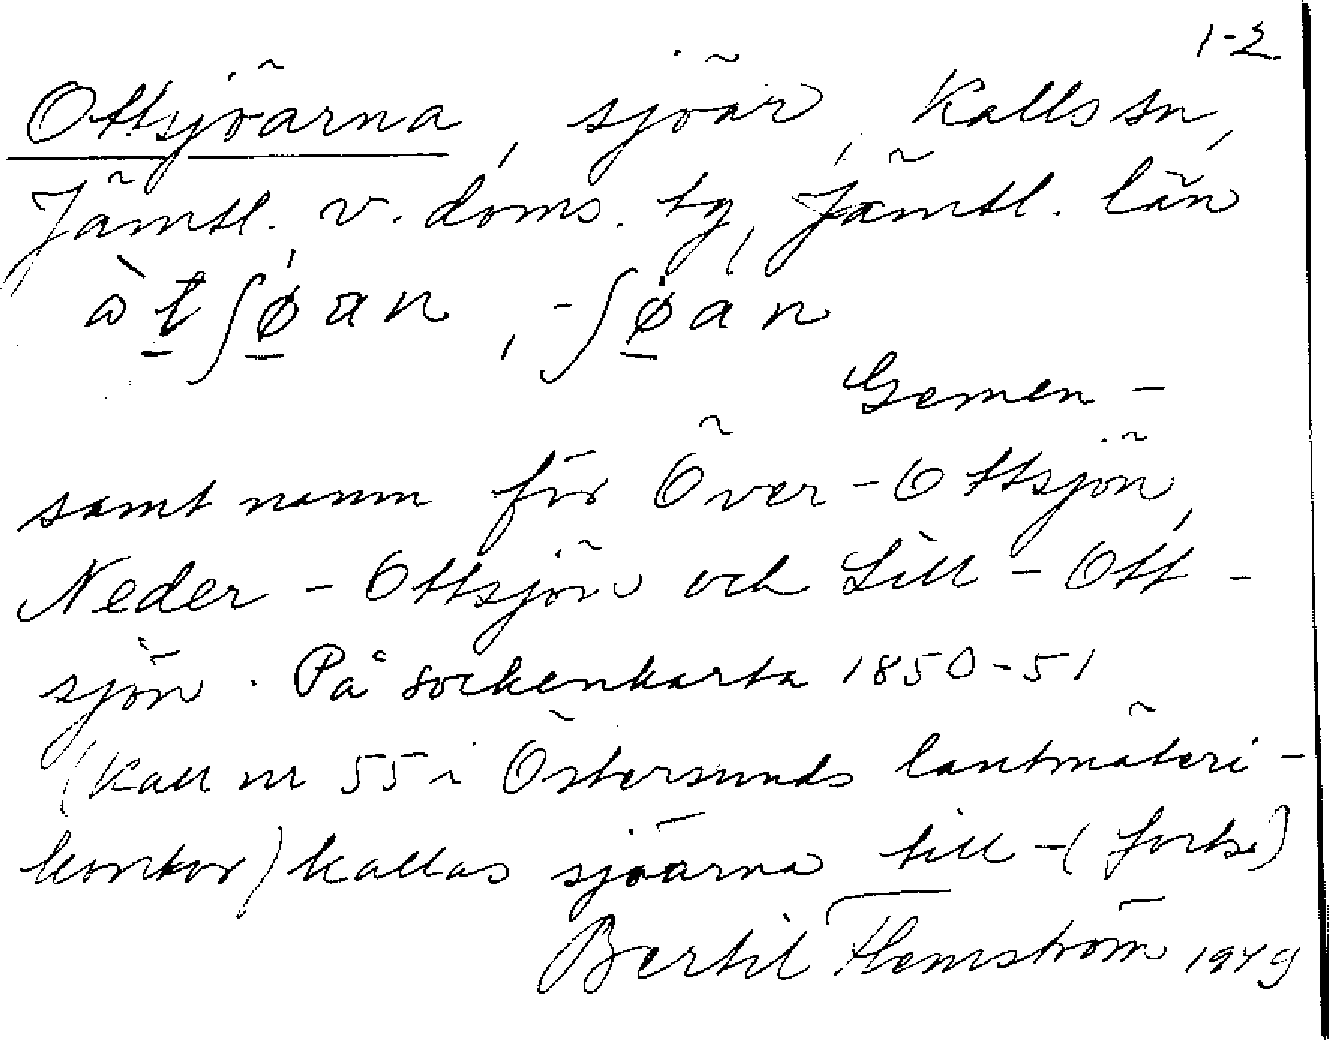 1-2
Ottsjöarna, sjöar, Kalls sn,
Jämtl. v. doms. tg, Jämtl. län
òtʃøan, -ʃøan
Gemen-
samt namn för Över-Ottsjön,
Neder-Ottsjön och Lill-Ott-
sjön. På sockenkarta 1850-51
(Kall nr 55 i Östersunds lantmäteri-
kontor) kallas sjöarna till-(forts.)
Bertil Flemström 1949